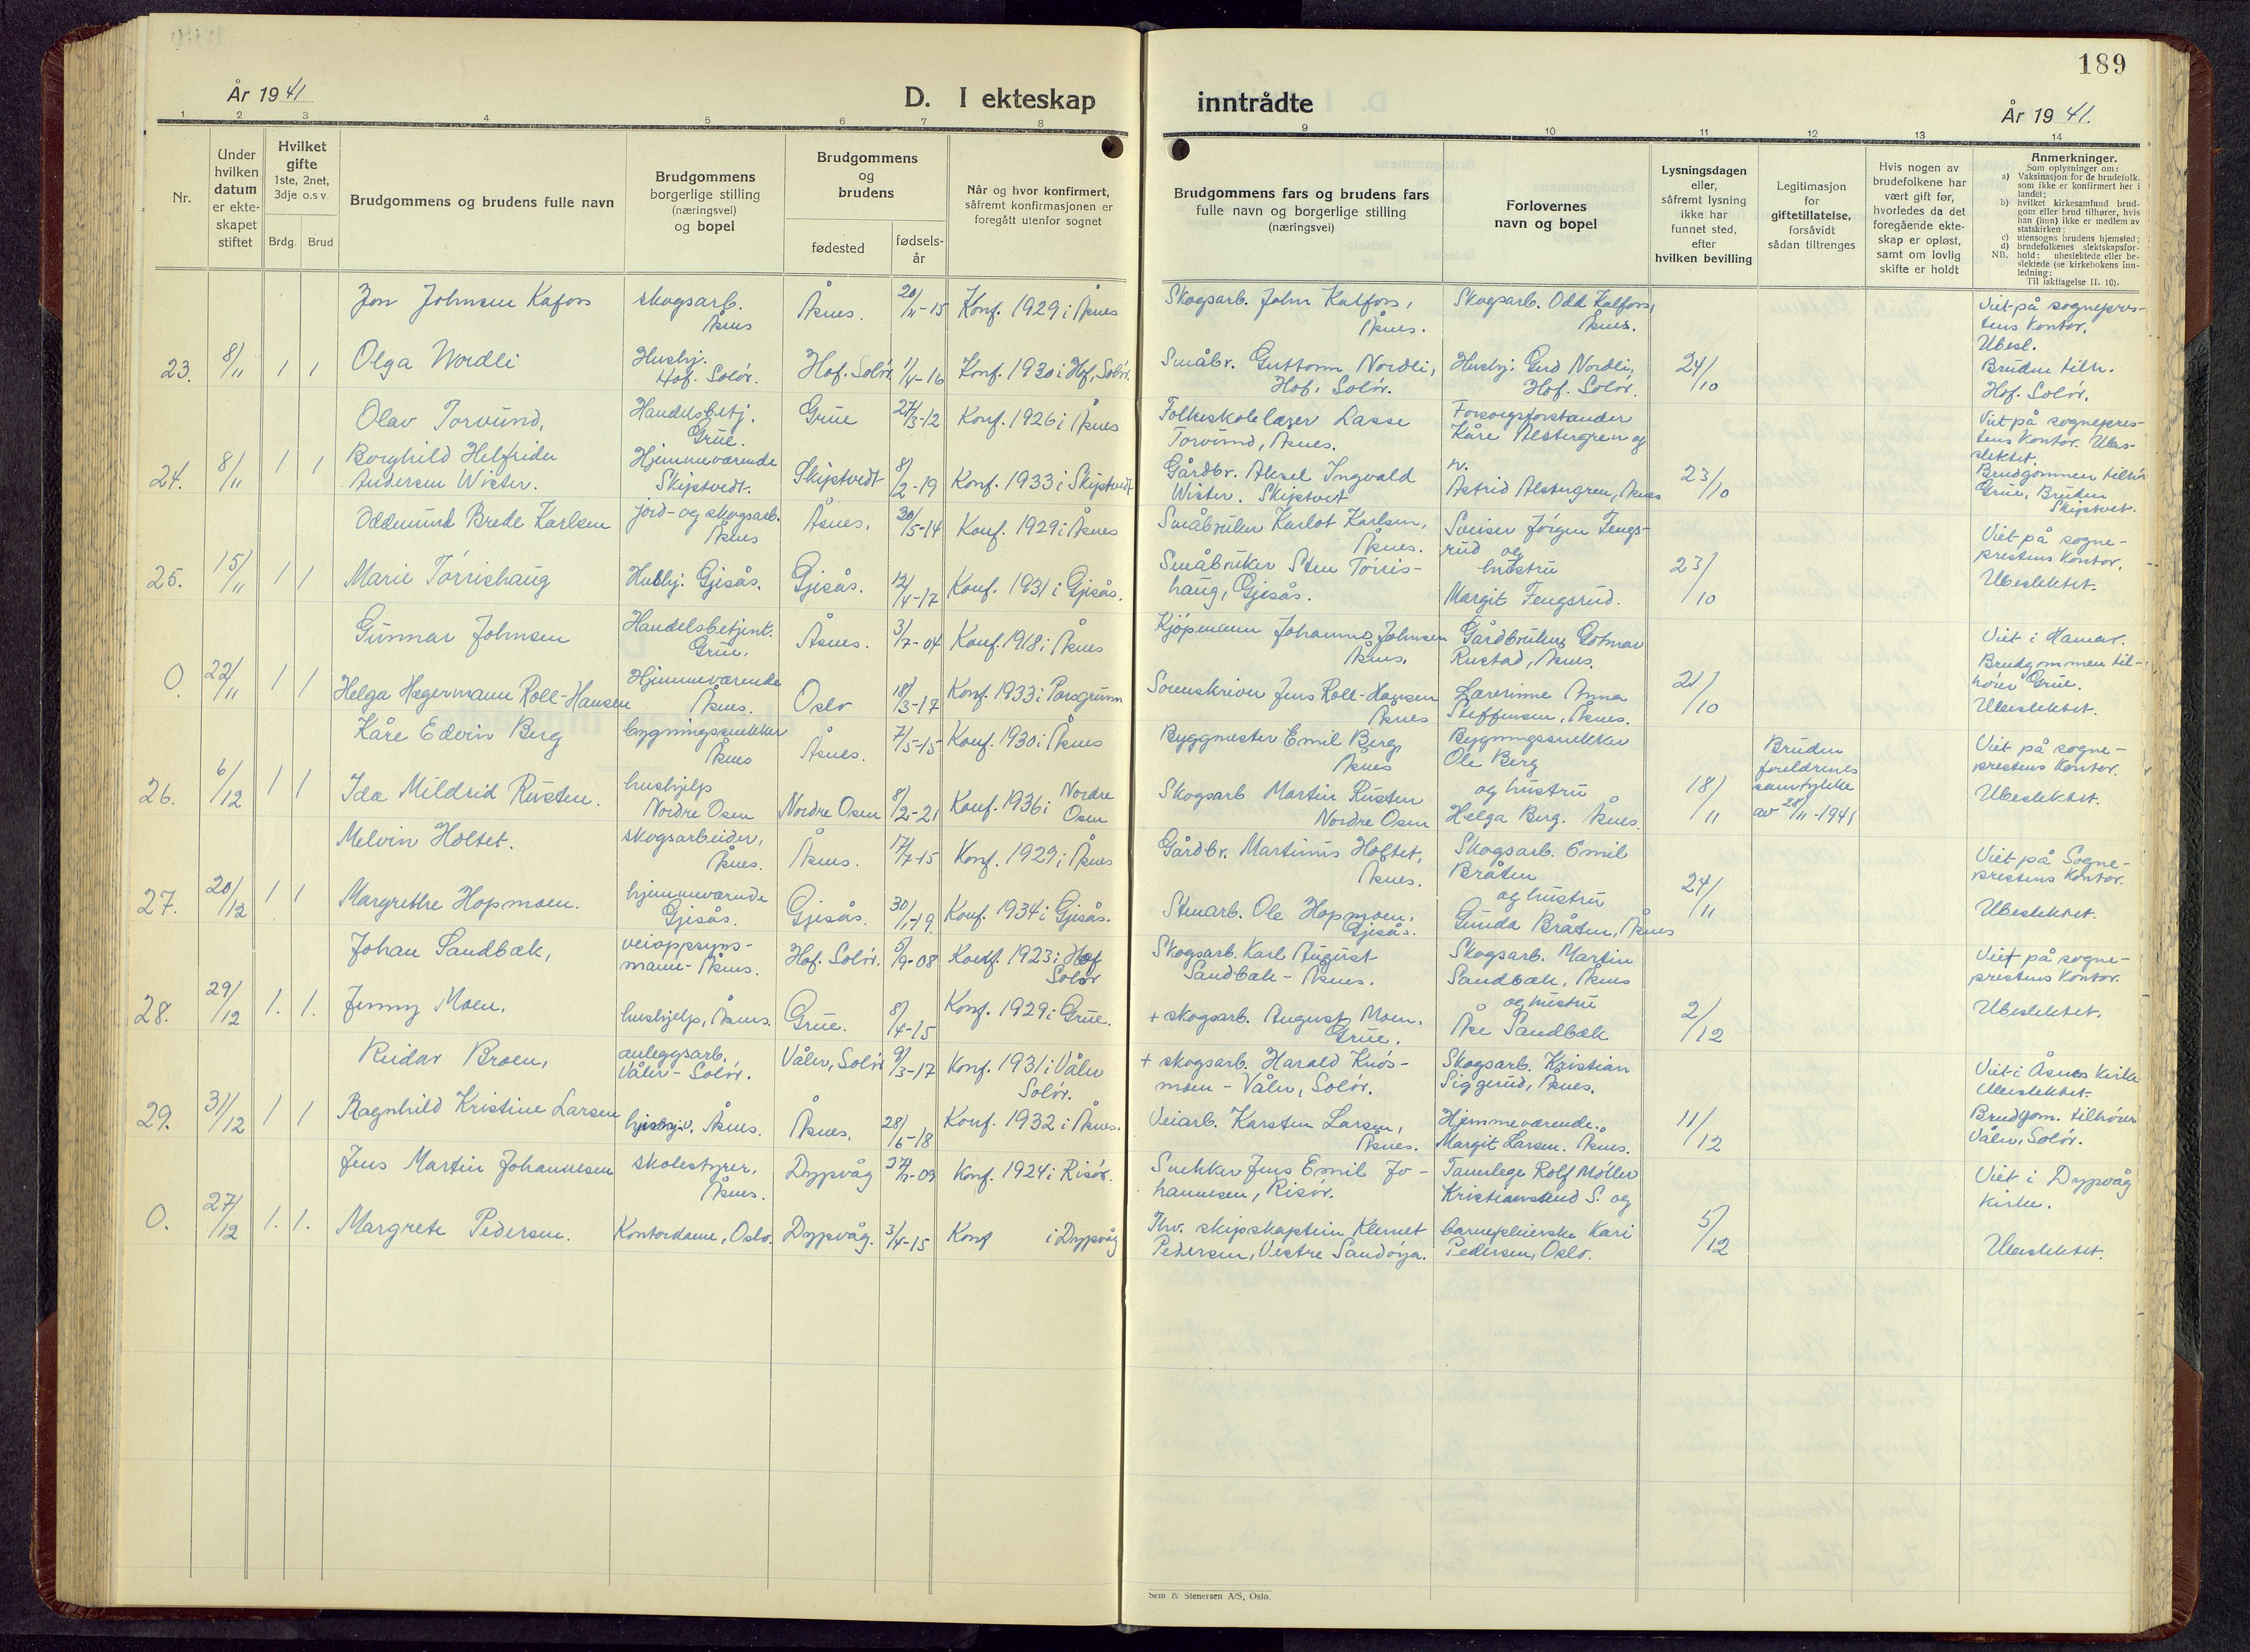 189
År 1941
D. I ekteskap
inntrådte
År 1941.
1 2 3 4 5 6 7 8
9 10 11 12 13 14
Nr.
Under
hvilken
datum
er ekte-
skapet
stiftet
Hvilket
gifte
1ste, 2net,
3dje o.s.v.
Brdg. Brud
Brudgommens og brudens fulle navn
Brudgommens
borgerlige stilling
(næringsvei)
og bopel
Brudgommens
og
brudens
fødested
fødsels-
år
Når og hvor konfirmert,
såfremt konfirmasjonen er
foregått utenfor sognet
Brudgommens fars og brudens fars
fulle navn og borgerlige stilling
(næringsvei)
Forlovernes
navn og bopel
Lysningsdagen
eller,
såfremt lysning
ikke har
funnet sted,
efter
hvilken bevilling
Legitimasjon
for
giftetillatelse,
forsåvidt
sådan tiltrenges
Hvis nogen av
brudefolkene har
vært gift før,
hvorledes da det
foregående ekte-
skap er opløst,
samt om lovlig
skifte er holdt
Anmerkninger.
Som oplysninger om:
a) Vaksinasjon for de brudefolk.
som ikke er konfirmert her i
landet;
b) hvilket kirkesamfund brud-
gom eller brud tilhører, hvis
han (hun) ikke er medlem av
statskirken;
c) utensogns brudens hjemsted;
d) brudefolkenes slektskapsfor-
hold: ubeslektede eller be-
slektede (se kirkebokens inn-
ledning;
NB. Til iaktagelse II. 10).
Jon Johnsen Kafoss
skogsarb.
Åsnes
Åsnes.
20/11-15
Konf. 1929 i Åsnes
Skogsarb. John Kalfoss,
Åsnes.
Skogsarb. Odd Kalfoss,
Åsnes.
Viet på sognepres-
tens kontor.
Ubesl.
23.
8/11
1 1
Olga Nordli
Hushj.
Hof. Solør.
Hof. Solør
1/4-16
Konf. 1930 i Hof, Solør.
Småbr. Guttorm Nordli,
Hof, Solør.
Hushj: Gud Nordli,
Hof. Solør.
24/10
Bruden tilh.
Hof. Solør.
Olav Torvund,
Handelsbetj.
Grue.
Grue
27/3-12
Konf. 1926 i Åsnes
Folkeskolelærer Lasse
Torvund, Åsnes.
Forsorgsforstander
Kåre Alstergren og
Viet på sognepres-
tens kontor. Ubes-
slektet.
24.
8/11
1 1
Borghild Helfrida
Andersen Wister.
Hjemmeværende
Skiptvedt.
Skiptvedt
8/2-19
Konf. 1933 i Skiptvedt
Gårdbr. Aksel Ingvald
Wister. Skiptvet
Astrid Alstergren, Åsnes
23/10
Brudgommen tilhør
Grue, Bruden
Skiptvet.
Oddmund Brede Karlsen
jord- og skogsarb.
Åsnes
Åsnes.
30/5-14
Konf. 1929 i Åsnes
Småbruker Karlot Karlsen,
Åsnes.
Sveiser Jörgen Fengs-
rud og
Viet på sogne-
prestens kontor.
25.
15/11
1 1
Marie Törrishaug
Hushj. Gjesås.
Gjesås.
12/4-17
Konf. 1931 i Gjesås.
Småbruker Sten Törris-
haug, Gjesås.
hustru
Margit Fengsrud.
23/10
Ubeslektet.
Gunnar Johnsen
Handelsbetjent.
Grue.
Åsnes.
3/7-04
Konf. 1918 i Åsnes
Kjöpmann Johannes Johnsen
Åsnes.
Gårdbruker Gotmar
Rustad, Åsnes.
Viet i Hamar.
0
22/11
1 1
Helga Hægermann Roll-Hansen
Hjemmeværende
Åsnes.
Oslo
18/3-17
Konf. 1933 i Porsgrunn
Sorenskriver Jens Roll-Hansen
Åsnes
Lærerinne Anna
Steffensen, Åsnes.
21/10
Brudgommen til-
hører Grue.
Ubeslektet.
Kåre Edvin Berg
bygningssnekker
Åsnes
Åsnes.
7/5-15
Konf. 1930 i Åsnes
Byggmester Emil Berg,
Åsnes
Bygningssnekker
Ole Berg
Viet på sogne-
prestens kontor.
26.
6/12
1 1
Ida Mildrid Rusten.
hushjelp
Nordre Osen
Nordre Osen
8/2-21
Konf. 1936 i Nordre
Osen
Skogsarb Martin Rusten
Nordre Osen
og hustru
Helga Berg. Åsnes.
18/11
Bruden
foreldrenes
samtykke
av 28/11-1941
Ubeslektet.
Melvin Holtet.
skogsarbeider,
Åsnes.
Åsnes.
17/7-15
Konf. 1929 i Åsnes
Gårdbr. Martinus Holtet,
Åsnes.
Skogsarb. Emil
Bråten
Viet på Sogne-
prestens kontor.
27.
20/12
1 1
Margrethe Hopmoen.
hjemmeværende
Gjesås.
Gjesås.
30/1-19
Konf. 1934 i Gjesås.
Stenarb. Ole Hopmoen.
Gjesås.
og hustru
Gunda Bråten, Åsnes
24/11
Ubeslektet.
Johan Sandbæk,
veioppsyns-
mann- Åsnes.
Hof. Solør.
5/9-08
Konf. 1923 i Hof
Solør
Skogsarb. Karl August
Sandbæk - Åsnes.
Skogsarb. Martin
Sandbæk, Åsnes
Viet på sogne-
prestens kontor.
28.
29/12
1. 1.
Jenny Moen.
hushjelp, Åsnes.
Grue.
8/4-15
Konf. 1929 i Grue.
+ skogsarb. August Moen.
Grue.
og hustru
Åse Sandbæk
2/12
Ubeslektet.
Reidar Broen,
anleggsarb.,
Våler - Solør.
Våler, Solør
9/3-17
Konf. 1931 i Våler
Solør.
+ skogsarb. Harald Knös-
moen - Våler, Solør.
Skogsarb. Kristian
Siggerud, Åsnes.
Viet i Åsnes kirke
Ubeslektet.
29.
31/12
1 1
Ragnhild Kristine Larsen
Åsnes.
Åsnes.
28/6-18
Konf. 1932 i Åsnes.
Veiarb. Karsten Larsen,
Åsnes.
Hjemmeværende
Margit Larsen. Åsnes.
11/12
Brudgom. tilhører
Våler, Solør.
Jens Martin Johannesen
skolestyrer,
Åsnes.
Dypvåg
Konf. 1924 i Risör.
Snekker Jens Emil Jo-
hannesen, Risör.
Tannlege Rolf Möller
Kristiansand S. og
Viet i Dypvåg
kirke.
0.
27/12
1. 1.
Margrete Pedersen.
Kontordame, Oslo.
Dypvåg.
3/4-15
Konf i Dypvåg
Fhv. skipskaptein Klemet
Pedersen, Vestre Sandøya.
barnepleierske Kari
Pedersen, Oslo.
5/12
Ubeslektet.
Sem & Stenersen A/S, Oslo.